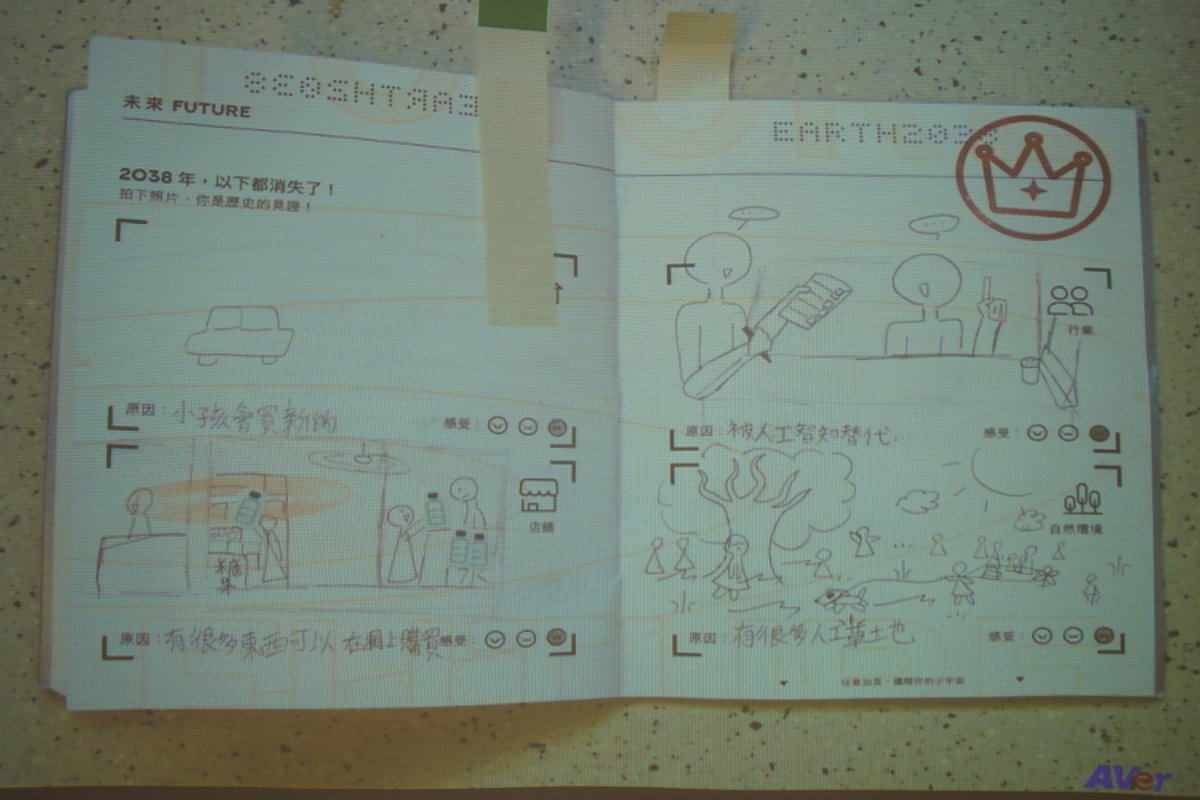 EARTH2038
未來 FUTURE
2038 年，以下都消失了！
拍下照片，你是歷史的見證！
原因：小孩會買新的
感受：
店鋪
糖果
水
原因：有很多東西可以在網上購買
感受：
EARTH2038
...
...
行業
原因：被人工智知替代...
感受：
自然環境
...
原因：有很多人工草地
感受：
任意加頁，讓闊你的小宇宙
AVer